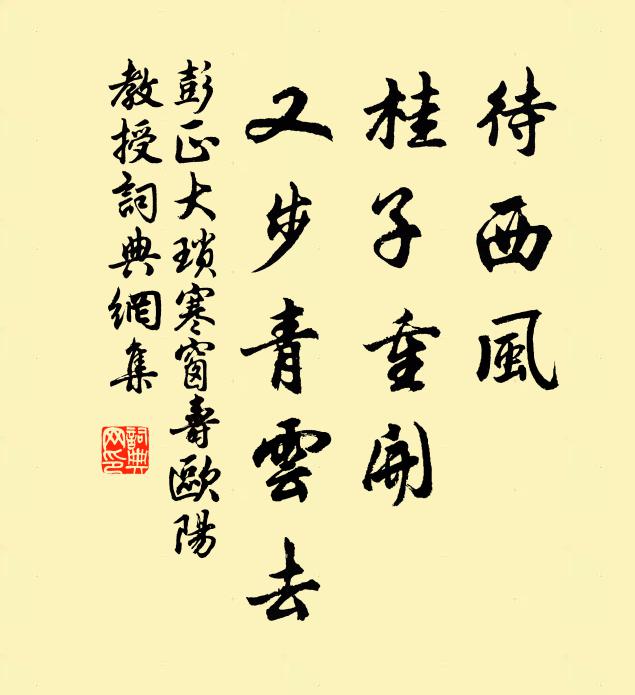 待西風
桂子重開
又步青雲去
彭正大瑣寒窗壽歐陽
教授詞典網集
詞典
网印